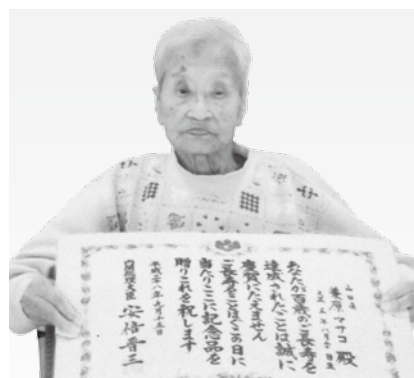 マサコ 殿
あなたが百歳のご長寿を
達成されたことは誠に
慶賀にたえません
ご長寿をことほぐこの日に
当たりここに記念品を
贈りこれを祝します
平成二十八年九月十五日
内閣総理大臣 安倍晋三